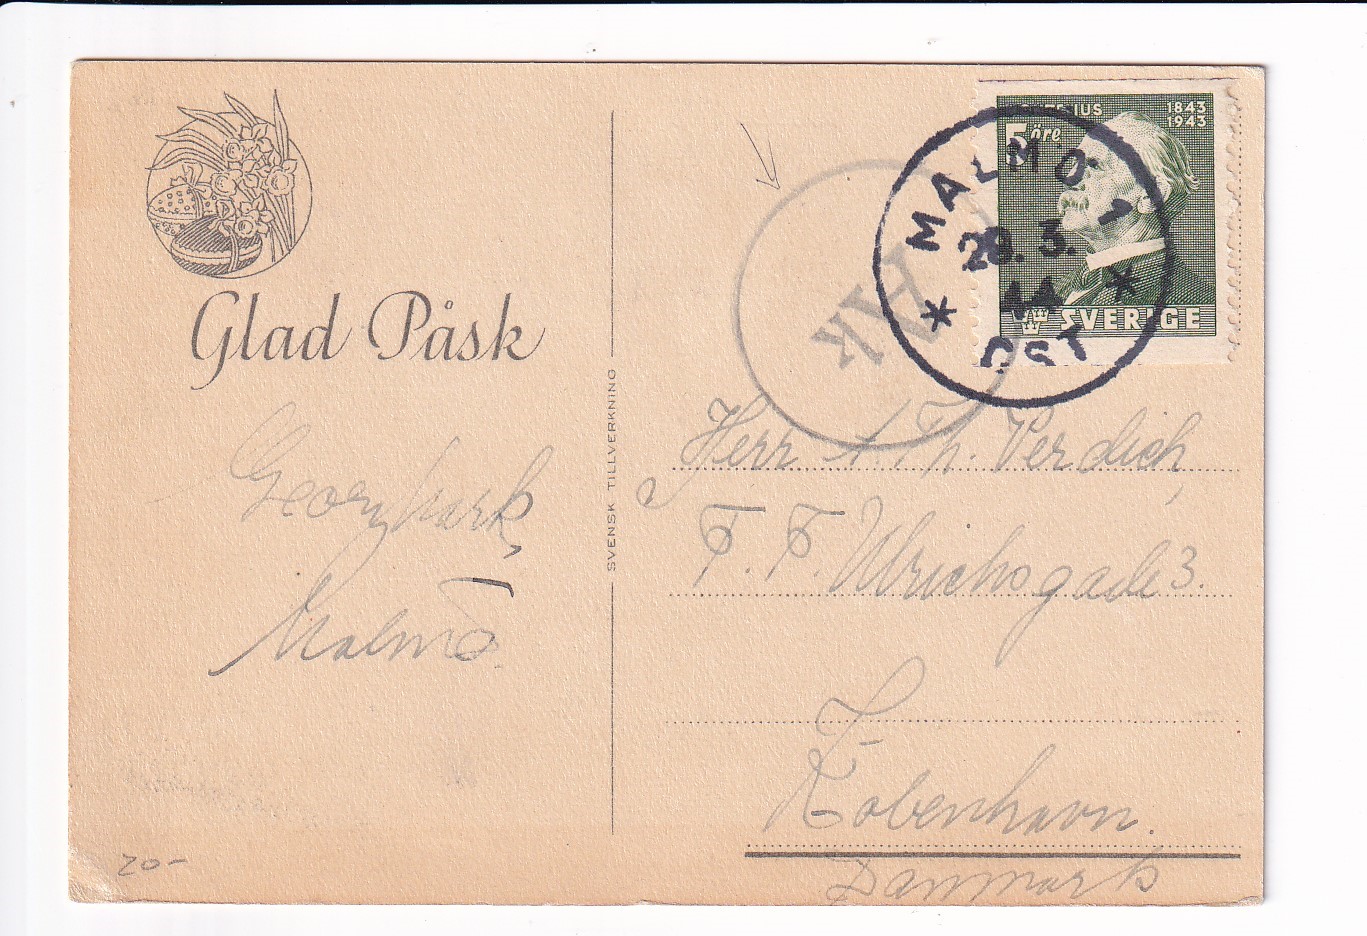 Glad Påsk
Malmö
20-
SVENSK TILLVERKNING
1843
1943
5 öre
SVERIGE
MALMÖ 1
28. 3.
44
ÖST
Ak
Herr A. Th. Verdich,
F. F. Ulrichsgade 3.
København.
Danmark